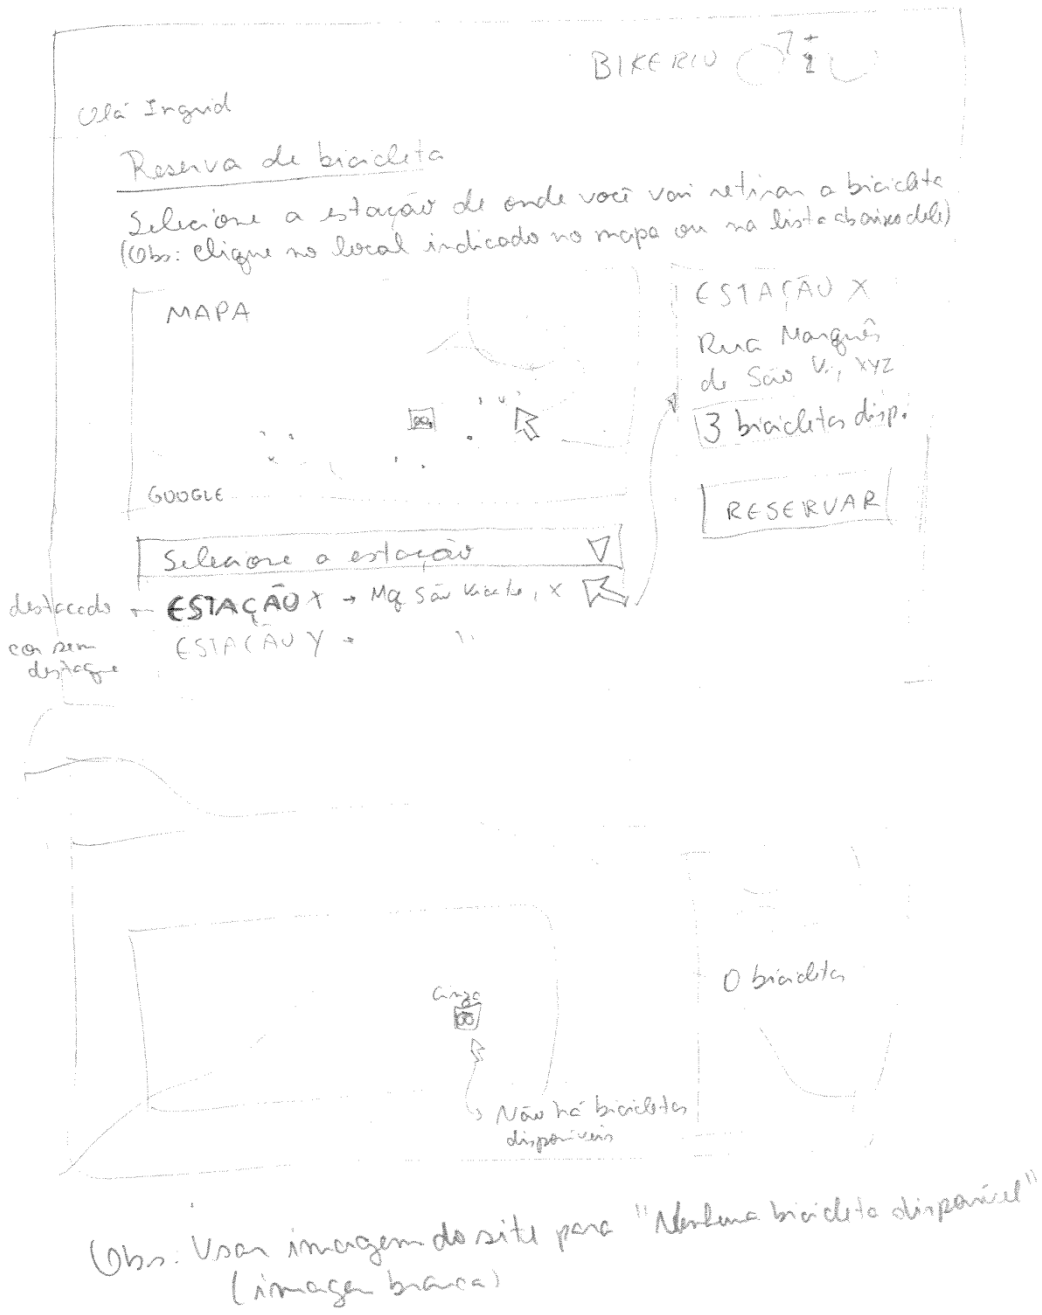 BIKE RIO
Olá Ingrid
Reserva de bicicleta
Selecione a estação de onde você vai retirar a bicicleta
(Obs: Clique no local indicado no mapa ou na lista abaixo dele)
MAPA
GOOGLE
ESTAÇÃO X
Rua Marquês
de São V., XYZ
3 bicicletas disp.
RESERVAR
Selecione a estação
destacado ← ESTAÇÃO X → Mq São Vicente, X
cor sem
destaque
ESTAÇÃO Y → "
Cinza
0 bicicletas
Não há bicicletas
disponíveis
Obs: Usar imagem do site para "Nenhuma bicicleta disponível"
(imagem branca)